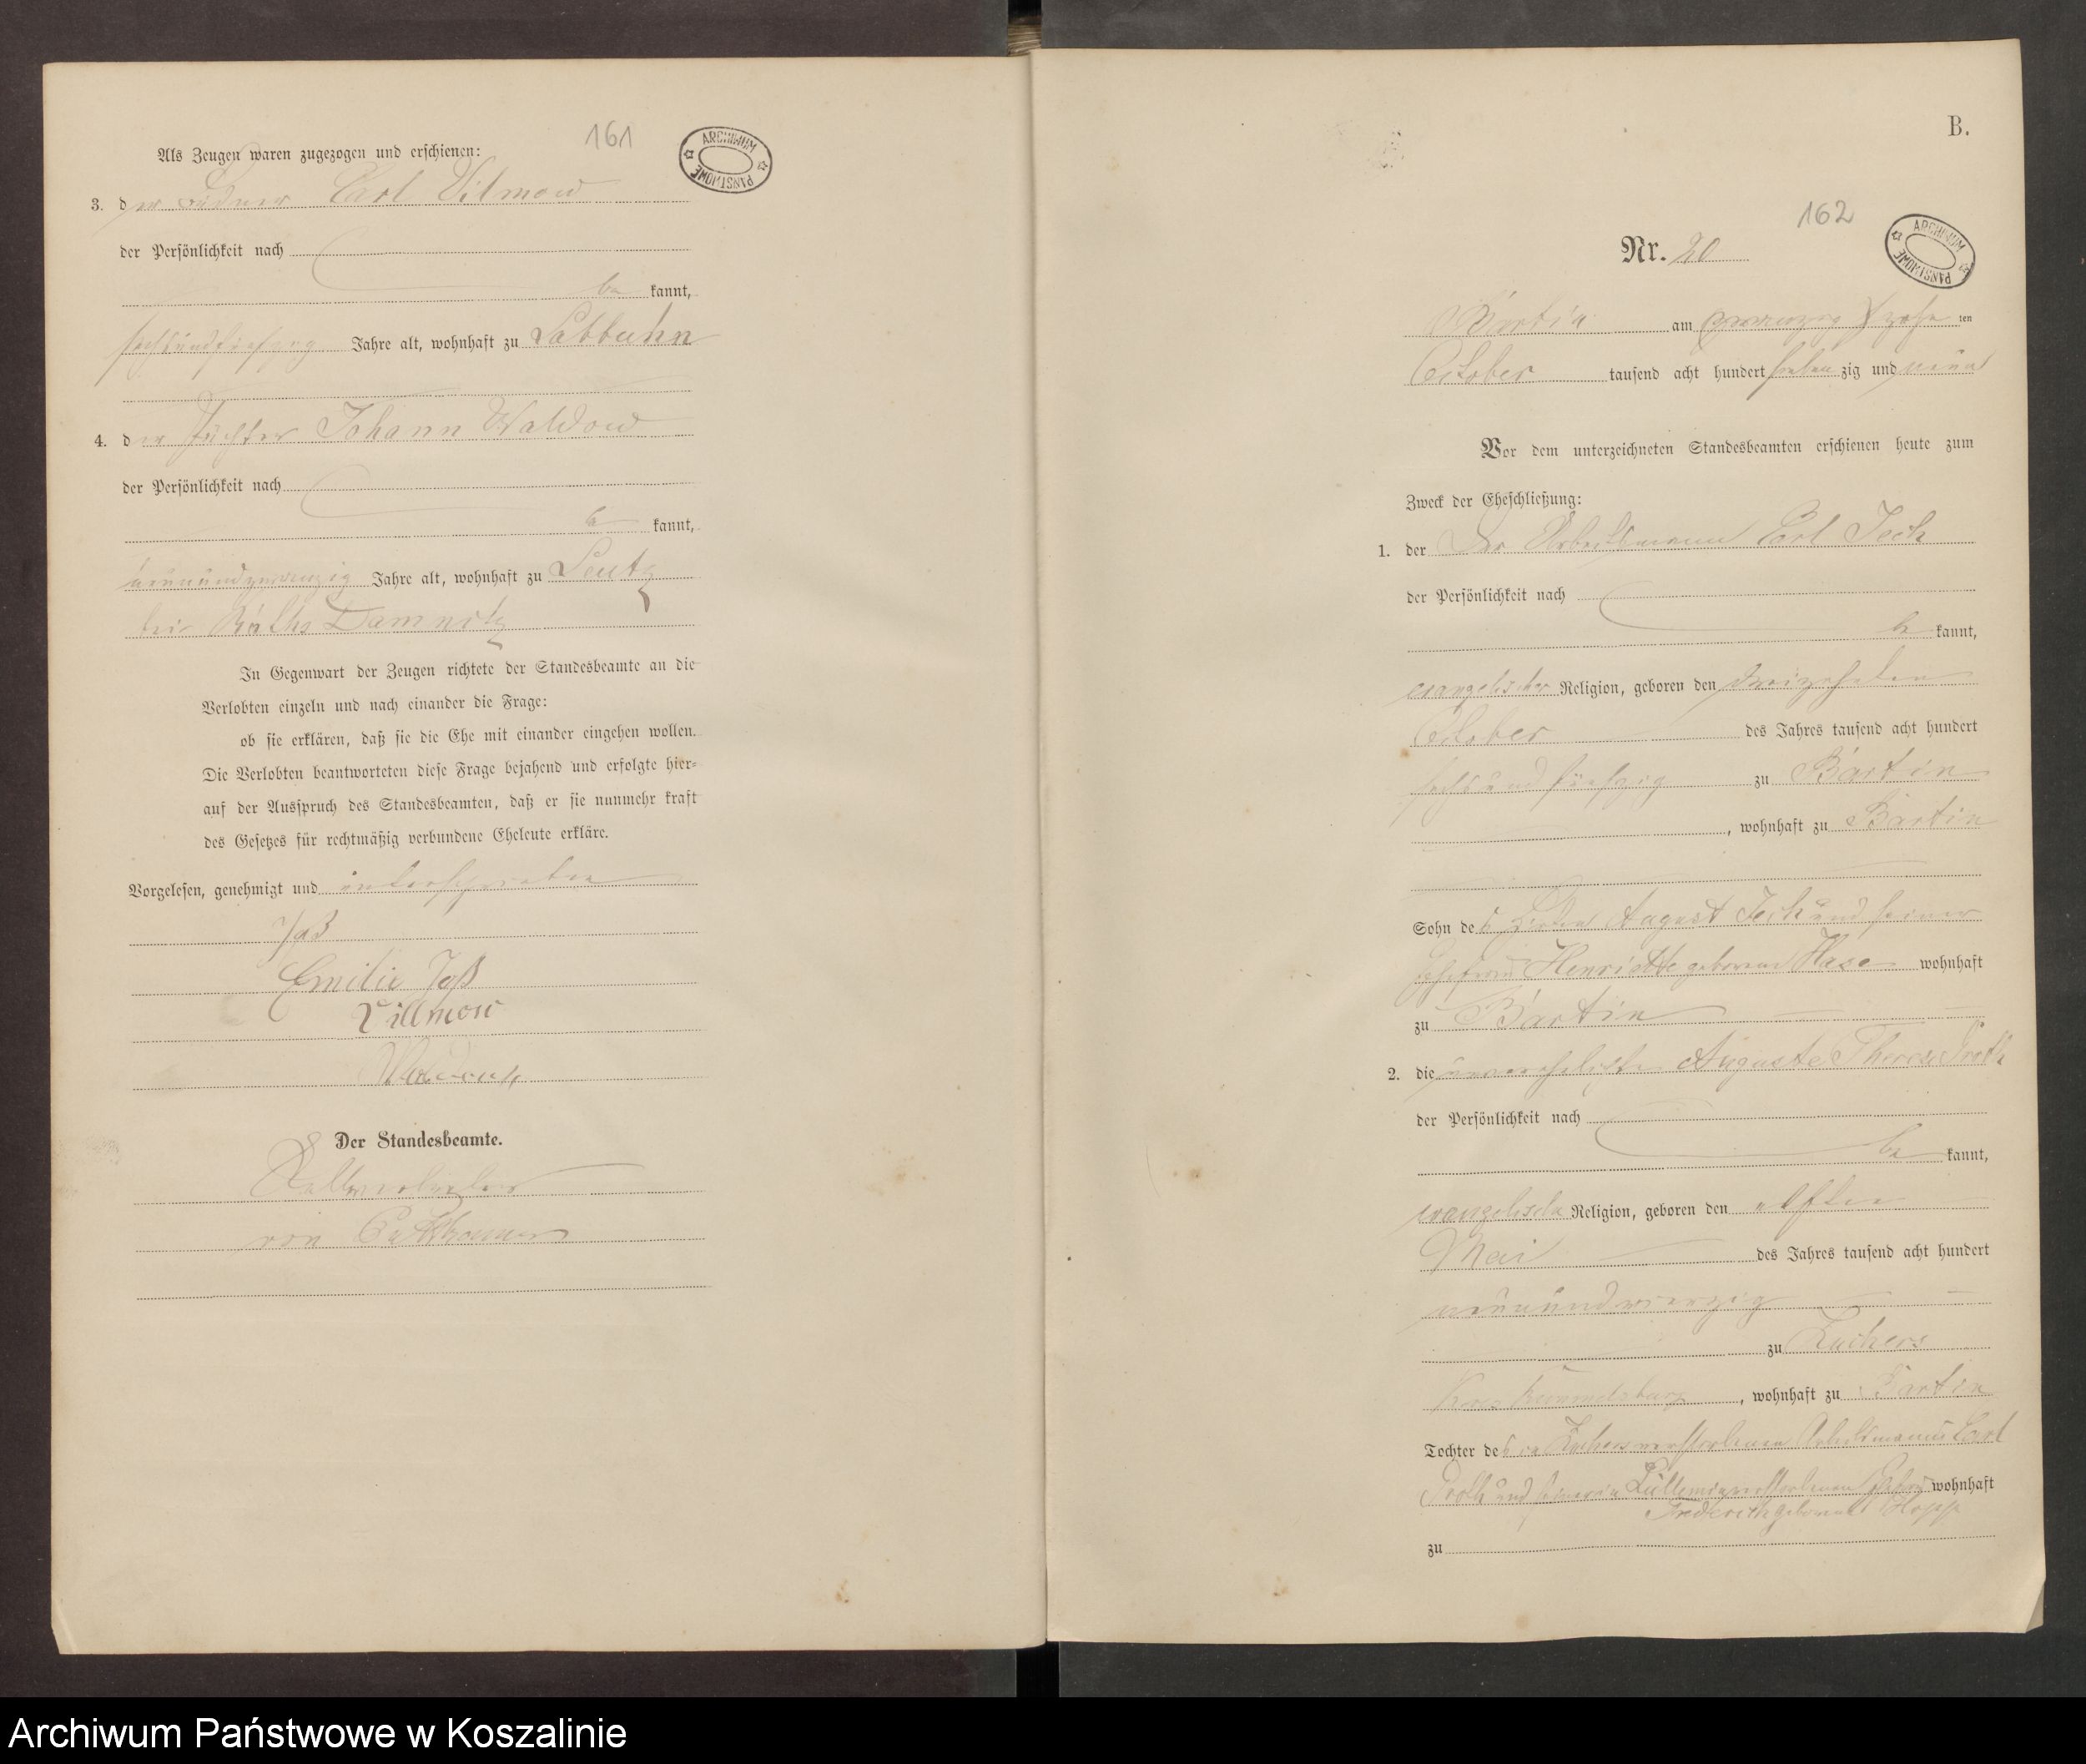 161
ARCHIWUM PAŃSTWOWE
Als Zeugen waren zugezogen und erschienen:
3. der Carl Vilmow
der Persönlichkeit nach
be kannt,
sechsundfünfzig Jahre alt, wohnhaft zu Labbuhn
4. der Johann Waldow
der Persönlichkeit nach
be kannt,
neunundzwanzig Jahre alt, wohnhaft zu Seutz
bei Raths Damnitz
In Gegenwart der Zeugen richtete der Standesbeamte an die
Verlobten einzeln und nach einander die Frage:
ob sie erklären, daß sie die Ehe mit einander eingehen wollen.
Die Verlobten beantworteten diese Frage bejahend und erfolgte hier-
auf der Ausspruch des Standesbeamten, daß er sie nunmehr kraft
des Gesetzes für rechtmäßig verbundene Eheleute erkläre.
Vorgelesen, genehmigt und unterschrieben
Joß
Emilie Joß
Villmow
Waldow
Der Standesbeamte.
von Puttkamer
B.
162
ARCHIWUM PAŃSTWOWE
Nr. 20
Bartin am ten
October tausend acht hundert sieben zig und neun
Vor dem unterzeichneten Standesbeamten erschienen heute zum
Zweck der Eheschließung:
1. der Der Arbeitsmann Carl Jech
der Persönlichkeit nach
be kannt,
evangelischer Religion, geboren den dreizehnten
October des Jahres tausend acht hundert
sechsundfünfzig zu Bartin
, wohnhaft zu Bartin
Sohn des Hirten August Jech und seiner
Ehefrau Henriette geborene Hase wohnhaft
zu Bartin
2. die unverehelichte Auguste Therese Proth
der Persönlichkeit nach
be kannt,
evangelischer Religion, geboren den elften
Mai des Jahres tausend acht hundert
neunundvierzig
zu Zuchers
Kreis Rummelsburg, wohnhaft zu Bartin
Tochter des in Zuchers verstorbenen Arbeitsmanns Carl
Proth und seiner in verstorbenen Ehefrau wohnhaft
Friederike geborene Hopp
zu
Archiwum Państwowe w Koszalinie